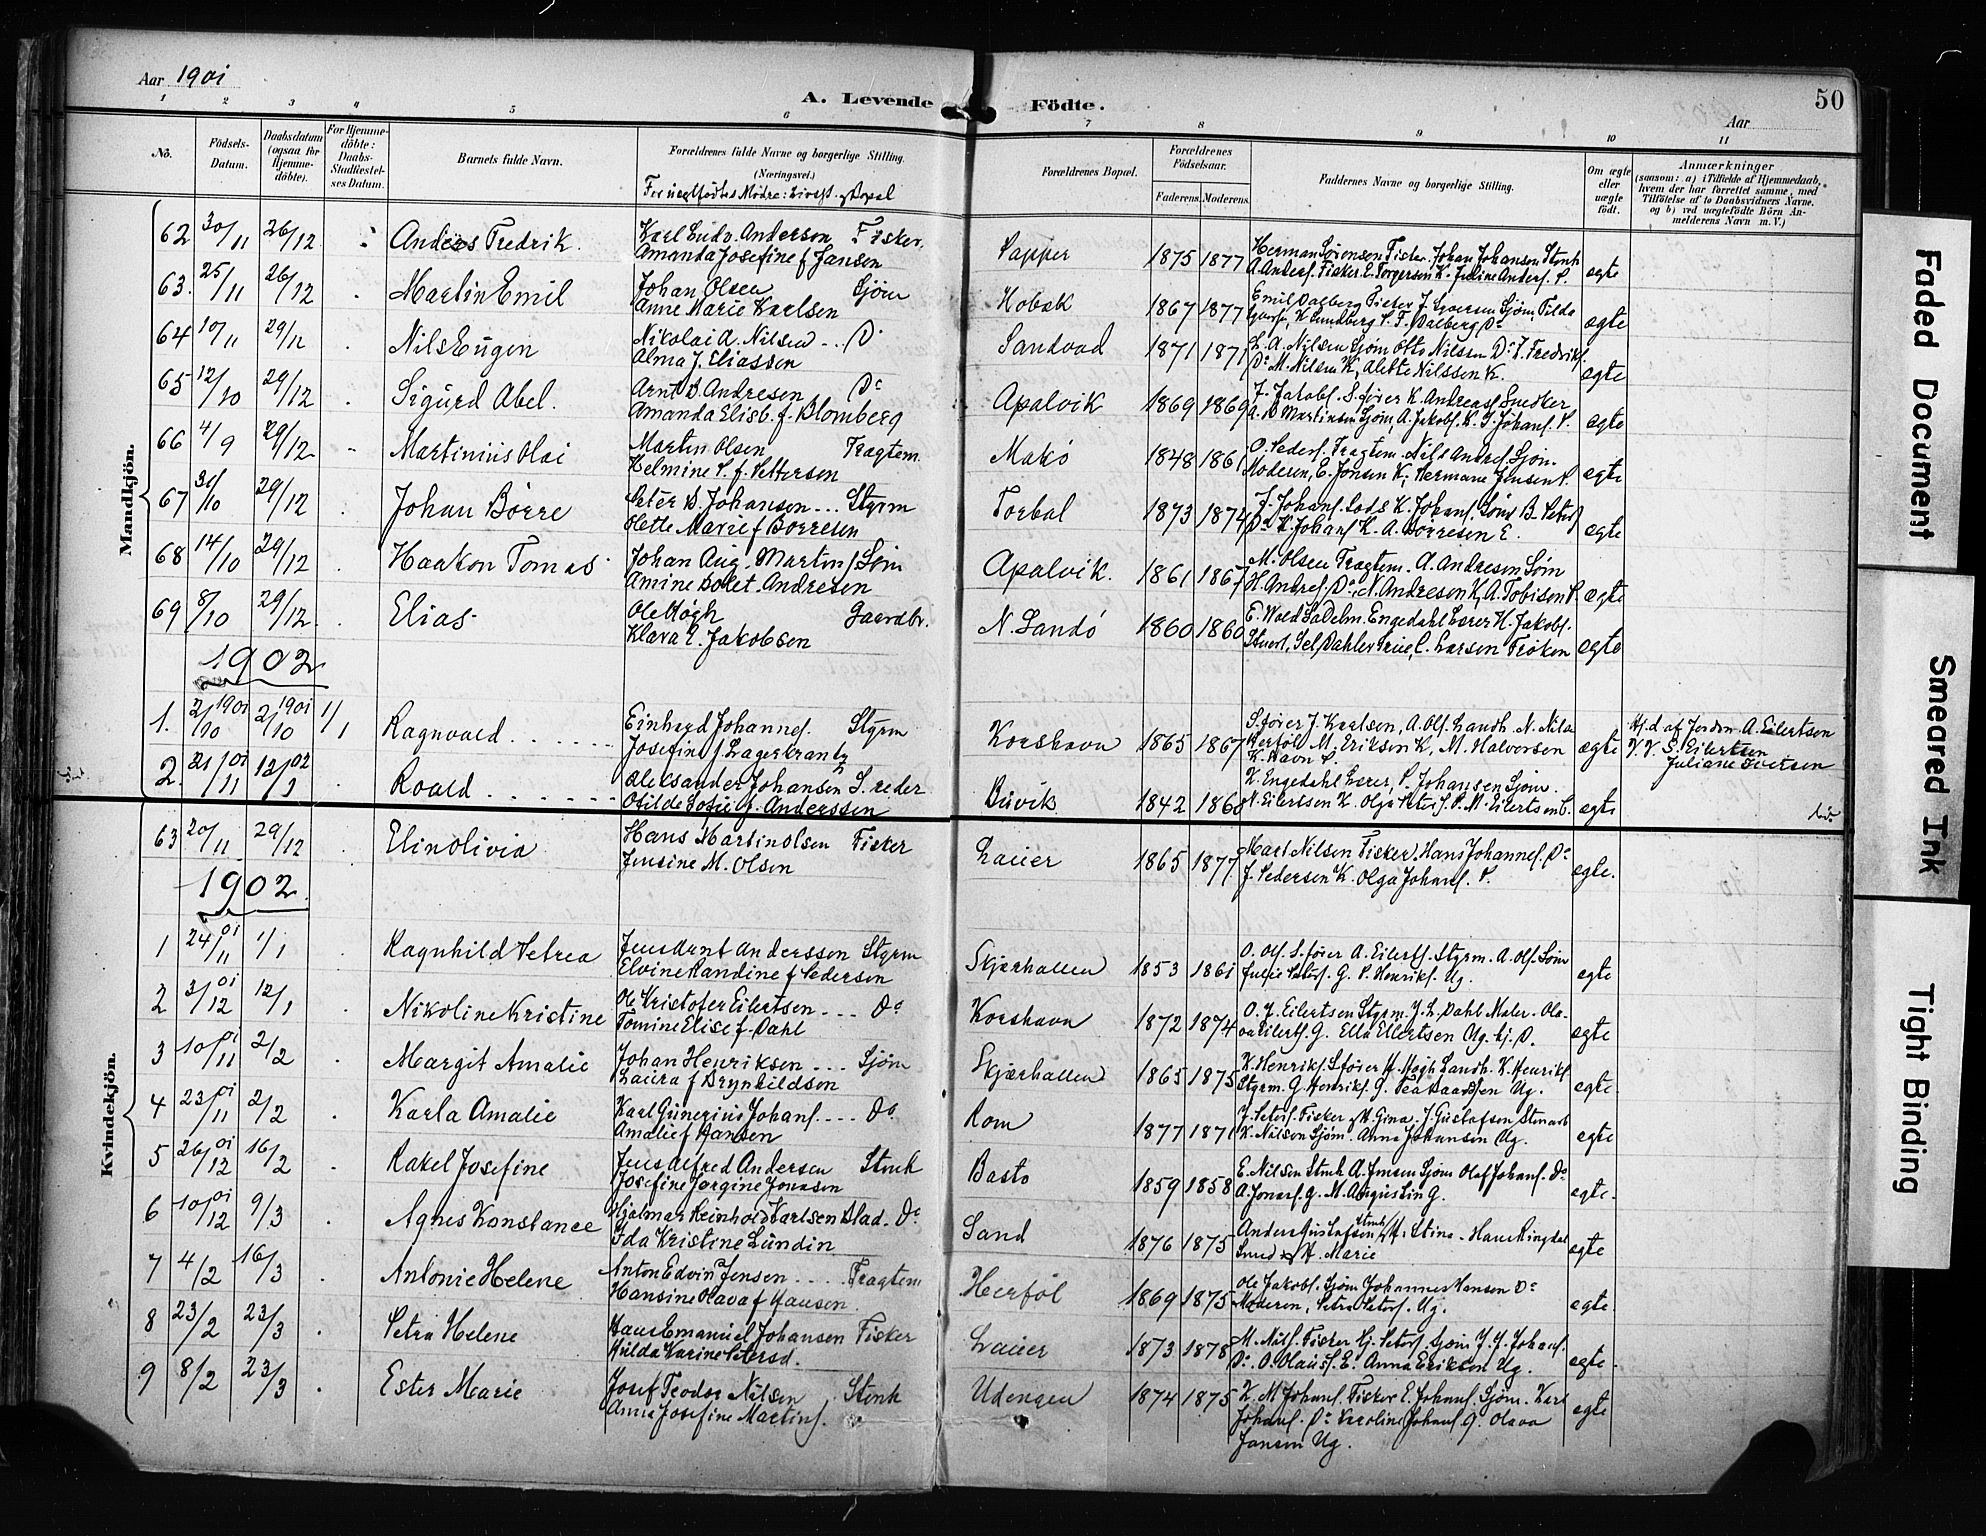 Aar 1901
A. Levende Födte.
50
Aar
1 2 3 4 5 6 7 8 9 10 11
No.
Födsels-Datum.
Daabsdatum (ogsaa for Hjemmedöbte).
For Hjemmedöbte: Daabs-Stadfæstelses Datum.
Barnets fulde Navn.
Forældrenes fulde Navne og borgerlige Stilling. (Næringsvei.)
Forældrenes Bopæl.
Forældrenes Födselsaar.
Faderens. Moderens.
Faddernes Navne og borgerlige Stilling.
Om ægte eller uægte födt.
Anmærkninger
(saasom: a) i Tilfælde af Hjemmedaab, hvem der har forrettet samme, med Tilföielse af to Daabsvidners Navne. og b) ved uægtefödte Börn Anmelderens Navn m. V.)
Mandkjön.
62 30/11 26/12 Anders Fredrik. Karl Ludv. Anderson Fisker. Papper 1875 1877 Herman Sörensen Fisker. Johan Johansen Stenh ægte
Amanda Josefine f Jansen
63. 25/11 26/12 Martin Emil Johan Olsen Sjöm Hobæk 1867 1877 Emil Dalberg Fisker ægte
Anne Marie Karlsen
64 10/11 29/12 Nils Eugen Nikolai A. Nilsen Do Sandvad 1871 1871 L. A. Nilsen Sjöm Otto Nilsen Do ægte
Alma J. Eliassen Do M. Nilsen K, Alette Nilssen K.
65 12/10 29/12 Sigurd Abel. Arnt B. Andresen Do Apalvik 1869 1869 J. Jakobs. S.förer K. Andreas. Snedker ægte
Amanda Elisb. f. Blomberg A. Martinsen Sjöm, A. Jakobs. K. J. Johans. P.
66 4/9 29/12 Martinius Olai Martin Olsen Fragtem. Makö 1848 1861 O. Peders. Fragtem. Nils Andres. Sjöm. ægte
Helmine P. f. Pettersen Moderen, E. Jonsen K, Hermane Jensen P.
67 30/10 29/12 Johan Börre Peter B. Johansen Styrm Torbal 1873 1874 J. Johans. Lods K. Johans. ægte
Olette Marie f Borresen Do K. Johans. K. A. Börresen E.
68 14/10 29/12 Haakon Tomas Johan Aug. Martins Söm Apalvik. 1861 1867 M. Olsen Fragtem. A. Andresen Söm ægte
Amine Andresen H. Andres. Do, N. Andresen K, A. Tobisen P.
69 8/10 29/12 Elias Ole Högh Gaardbr. N. Sandö 1860 1860 E. Wold Engedahl Lærer H. Jakobs. ægte
Klara E. Jakobsen C. Larsen Fröken
1902
1. 2/10 1901 2/10 1901 1/1 Ragnvald Einhard Johannes. Styrm Korshavn 1865 1867 S.förer J. Karlsen, A. Ols. Landh. N. Nils. ægte Hj.d. af Jordm. A. Eilertsen
Josefine f Lagerkrantz Herföl M. Eriksen K, M. Halvorsen V.V. S. Eilertsen
K. Havn P. Juliane Iversen
2. 21/11 01 12/1 02 Roald Aleksander Johansen S.reder Buvik 1842 1860 K. Engedahl Lærer, P. Johansen Sjöm. ægte
Otilde Sofie f. Anderssen N. Eilertsen K. Olga Peters. P. M. Eilertsen E.
Kvindekjön.
63 20/11 29/12 Elin Olivia Hans Martin Olsen Fisker Lauer 1865 1877 Mart Nilsen Fisker, Hans Johannes. Do ægte.
Jensine M. Olsen J. Pedersen K. Olga Johans. P.
1902.
1 24/11 01 1/1 Ragnhild Petrea Jens Arnt Anderssen Styrm Skjærhallen 1853 1861 O. Ols. S.förer A. Eilerts. Styrm. A. Ols. Söm ægte
Elvine Randine f Pedersen Julie Peters. G. P. Henriks. Ug.
2 31/12 01 12/1 Nikoline Kristine Ole Kristofer Eilertsen Do Korshavn 1872 1874 O. J. Eilertsen Styrm. J. L. Dahl Maler. ægte
Tomine Elise f. Dahl Eilerts. G. Ella Eilertsen Ug.
3 10/11 01 2/2 Margit Amalie Johan Henriksen Sjöm Skjærhallen 1865 1875 K. Henriks. S.förer H. Högh Landh. K. Henriks. ægte
Laura f Brynhildsen Styrm. G. Henriks. G. Ug.
4 23/11 01 2/2 Karla Amalie Karl Gunerius Johans. Do Rom 1877 1871 J. Peters. Fisker H. Gina, J. Gustafsen Stenarb ægte
Amalie f Hansen K. Nilsen Sjöm. Anna Johansen Ug.
5 26/12 01 16/2 Rakel Josefine Jens Alfred Andersen Stenh Basto 1859 1858 E. Nilsen Stenh A. Jensen Sjöm Olaf Johans. Do ægte
Josefine Jorgine Jonasen A. Jonass. G. M. Augustin G.
6 10/12 01 9/3 Agnes Konstance Hjalmar Reinhold Karlsen Blad. Do Sand 1876 1875 Anders Gustafsen Stenh H. Stina. Hans Ringdal ægte
Ida Kristine Lundin Smed H. Marie
7 4/2 16/3 Antonie Helene Anton Edvin Jensen Fragtem Herföl 1869 1875 Ole Jakobs. Sjöm Johannes Hansen Do ægte.
Hansine Olava f Hansen. Moderen, Petra Peters. Ug.
8 23/2 23/3 Petra Helene Hans Emanuel Johansen Fisker Lauer 1873 1878 M. Nils. Fisker Hj. Peters. Sjöm J. J. Johans. ægte
Hulda Karine Petersd. Do. O. Olaus. E. Anna Eriksen Ug.
9 8/2 23/3 Ester Marie Josef Teodor Nilsen Stenh Udengen 1874 1875 K. M Johans. Fisker E. Johans. Sjöm. Karl ægte
Anna Josefine Martins. Johans. Do Karoline Johans. G. Olava
Jansen Ug.
Faded Document
Smeared Ink
Tight Binding